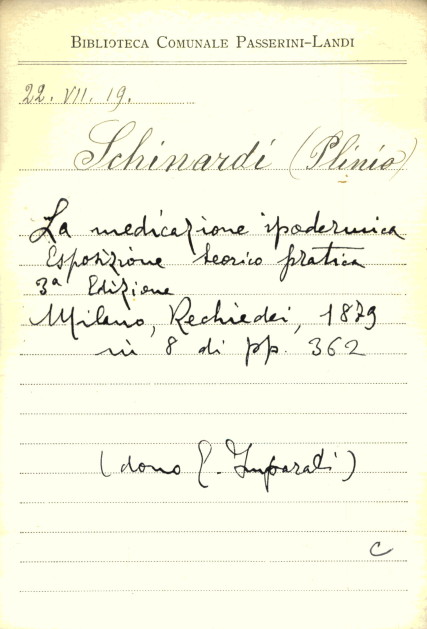 BIBLIOTECA COMUNALE PASSERINI-LANDI
22. VII. 19.
Schinardi (Plinio)
La medicazione ipodermica
Esposizione teorico pratica
3ª Edizione
Milano, Rechiedei, 1879
in 8 di pp. 362
(dono E. Imparati)
C